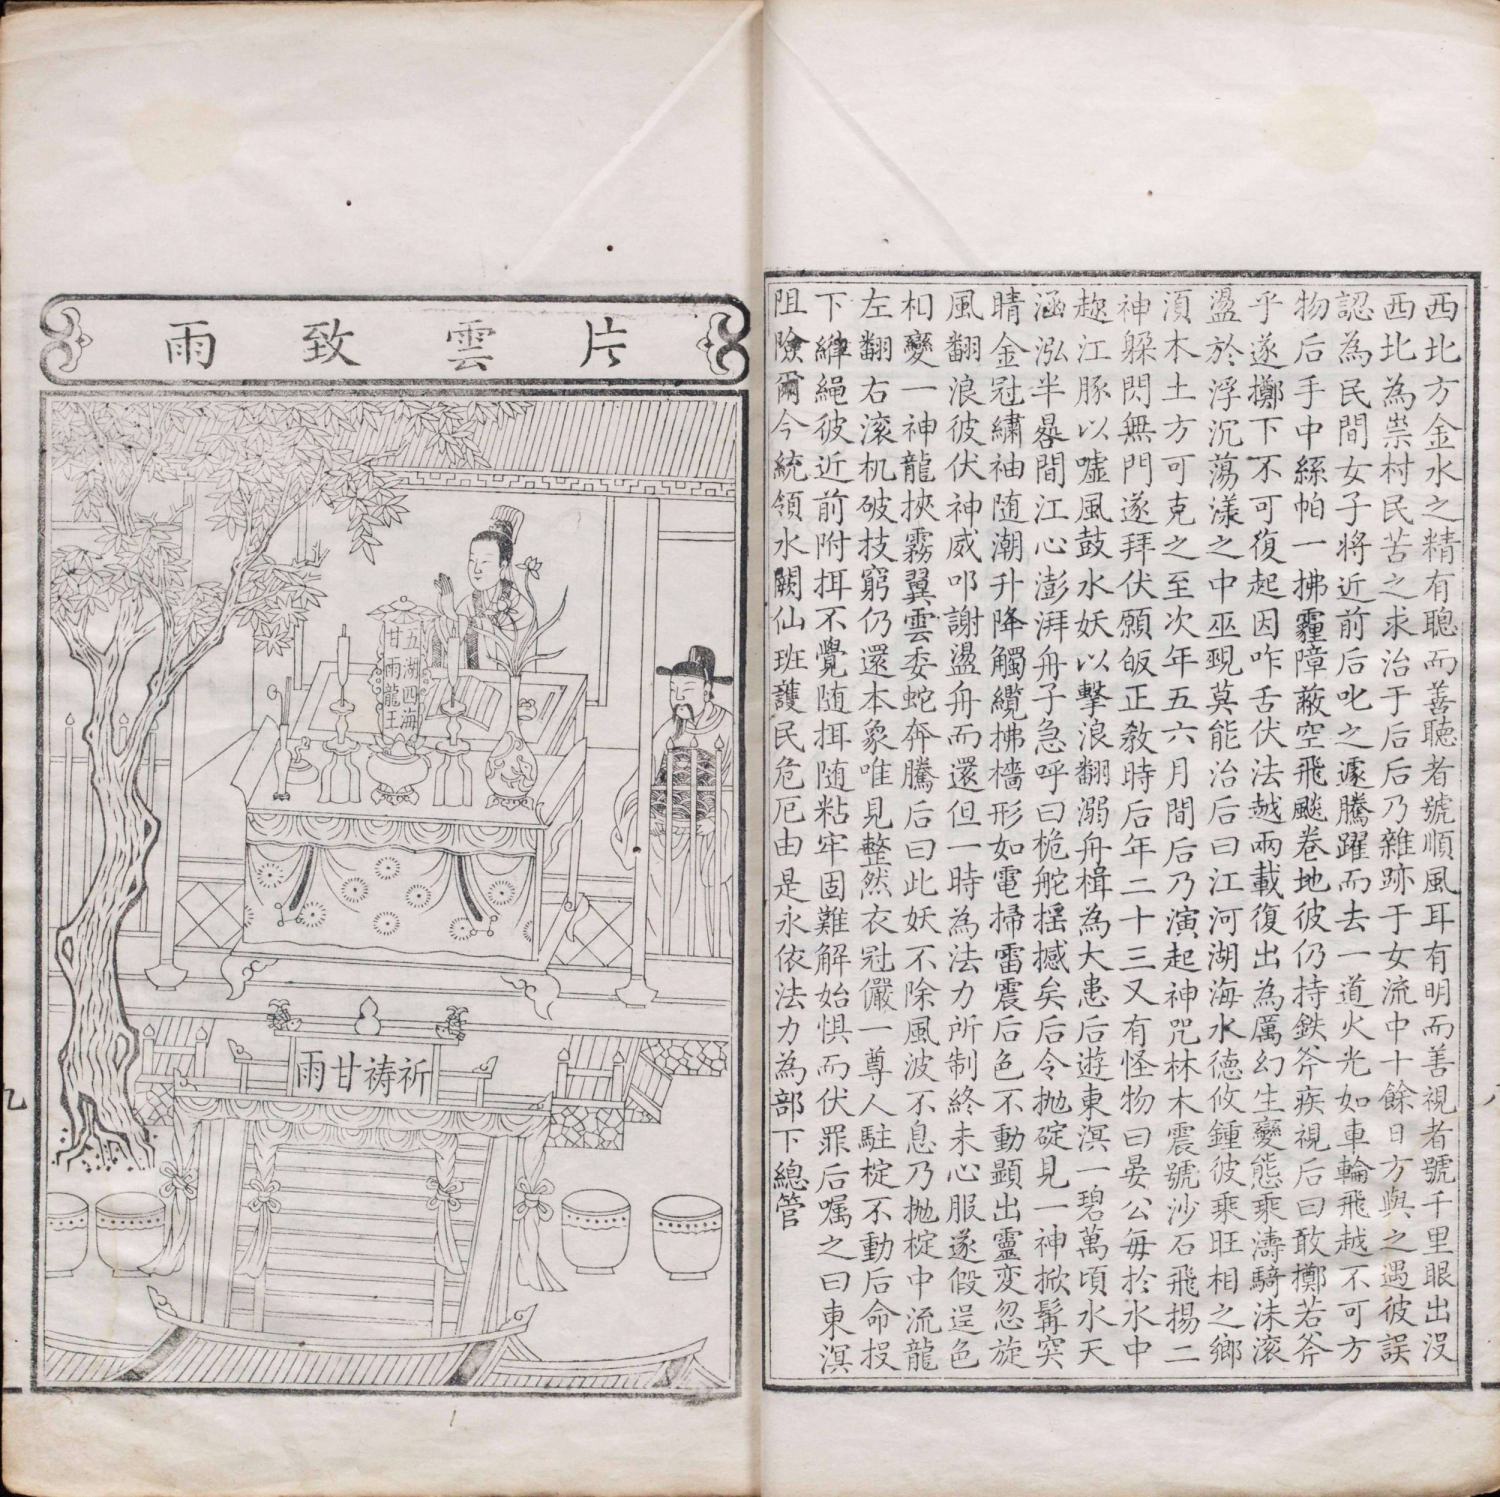 西北方金水之精有聰而善聽者號順風耳有明而善視者號千里眼出没
西北為祟村民苦之求治于后后乃雜跡于女流中十餘日方與之遇彼誤
認為民間女子將近前后叱之遽騰躍而去一道火光如車輪飛越不可方
物后手中絲帕一拂霾障蔽空飛颷卷地彼仍持鉄斧疾視后曰敢擲若斧
乎遂擲下不可復起因咋舌伏法越兩載復出為厲幻生變態乘濤騎沫滚
盪於浮沉蕩漾之中巫覡莫能治后曰江河湖海水德攸鍾彼乘旺相之鄉
湏木土方可克之至次年五六月間后乃演起神咒林木震號沙石飛揚二
神躱閃無門遂拜伏願皈正教時后年二十三又有怪物曰晏公每於水中
趂江豚以噓風鼓水妖以擊浪翻溺舟楫為大患后遊東溟一碧萬頃水天
涵泓半晷間江心澎湃舟子急呼曰桅舵揺撼矣后令抛碇見一神掀髯突
睛金冠繡袖随潮升降觸纜拂檣形如電掃雷震后色不動顯出靈变忽旋
風翻浪彼伏神威叩謝盪舟而還但一時為法力所制終未心服遂假逞色
相變一神龍挾霧翼雲委蛇奔騰后曰此妖不除風波不息乃抛椗中流龍
左翻右滚机破技窮仍還本象唯見整然衣冠儼一尊人駐椗不動后命投
下繂繩彼近前附挕不覺随挕随粘牢固難解始惧而伏罪后嘱之曰東溟
阻險爾今統領水闕仙班護民危厄由是永依法力為部下總管
片雲致雨
五湖四海
甘雨龍王
祈祷甘雨
九